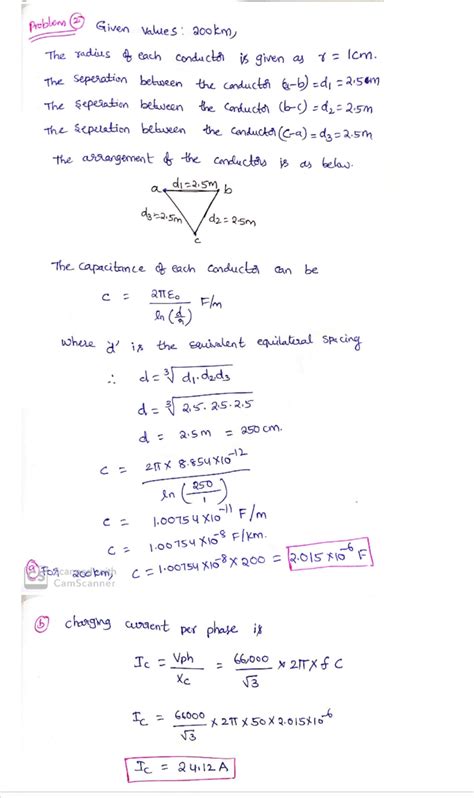 Problem ② Given Values: 200km,
The radius of each conductor is given as r = 1cm.
The seperation between the conductor (a-b) = d₁ = 2.5m
The seperation between the conductor (b-c) = d₂ = 2.5m
The seperation between the conductor (c-a) = d₃ = 2.5m
The arrangement of the conductors is as below.
a d₁=2.5m b
d₃=2.5m d₂=2.5m
c
The capacitance of each conductor can be
C = 2πε₀ / ln(d/r) F/m
Where 'd' is the equivalent equilateral spacing
∴ d = ∛d₁.d₂.d₃
d = ∛2.5.2.5.2.5
d = 2.5m = 250cm.
C = 2π × 8.854×10⁻¹² / ln(250/1)
C = 1.00754×10⁻¹¹ F/m
C = 1.00754×10⁻⁸ F/km.
ⓐ For 200km, C = 1.00754×10⁻⁸ × 200 = 2.015×10⁻⁶ F
CS Scanned with
CamScanner
ⓑ charging current per phase is
I_c = Vph / X_c = 66000 / √3 × 2π × f C
I_c = 66000 / √3 × 2π × 50 × 2.015×10⁻⁶
I_c = 24.12A